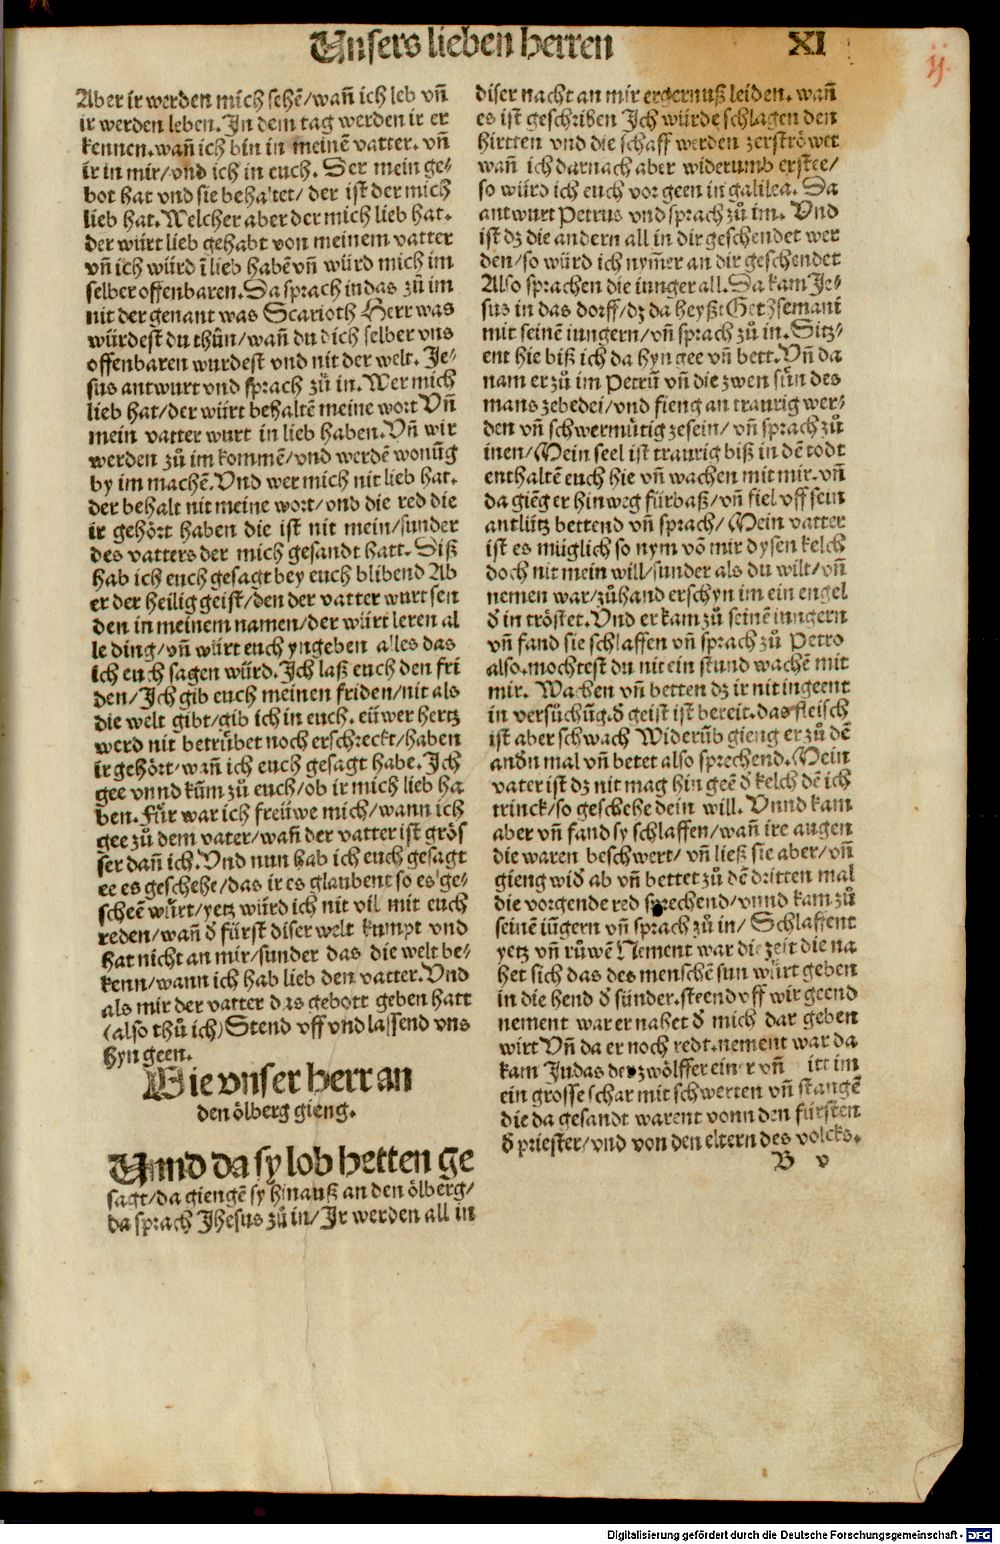 Unsers lieben herren
XI
ij.
Aber ir werden mich sehẽ/wañ ich leb vñ
ir werden leben. In dem tag werden ir er
kennen. wañ ich bin in meinẽ vatter. vñ
ir in mir/vnd ich in euch. Der mein ge-
bot hat vnd sie behaltet/ der ist der mich
lieb hat. Welcher aber der mich lieb hat.
der würt lieb gehabt von meinem vatter
vñ ich würd ĩ lieb habẽ vñ würd mich im
selber offenbaren. Da sprach indas zů im
nit der genant was Scarioth Herr was
würdest du thůn/wañ du dich selber vns
offenbaren wurdest vnd nit der welt. Je-
sus antwurt vnd sprach zů in. Wer mich
lieb hat/der würt behaltẽ meine wort Vñ
mein vatter wurt in lieb haben. Vñ wir
werden zů im kommẽ/vnd werdẽ wonũg
by im machẽ. Vnd wer mich nit lieb hat.
der behalt nit meine wort/vnd die red die
ir gehört haben die ist nit mein/sunder
des vatters der mich gesandt hatt. Diß
hab ich euch gesagt bey euch blibend Ab
er der heilig geist/den der vatter wurt sen
den in meinem namen/der würt leren al
le ding/vñ würt euch yngeben alles das
ich euch sagen würd. Ich laß euch den fri
den/Ich gib euch meinen friden/nit als
die welt gibt/gib ich in euch. eüwer hertz
werd nit betrübet noch erschreckt/haben
ir gehört/wañ ich euch gesagt habe. Ich
gee vnnd kũm zů euch/ob ir mich lieb ha
ben. Für war ich freüwe mich/wann ich
gee zů dem vater/wañ der vatter ist grös
ser dañ ich. Vnd nun hab ich euch gesagt
ee es geschehe/das ir es glaubent so es ge-
scheẽ würt/yetz würd ich nit vil mit euch
reden/wañ d̕ fürst diser welt kumpt vnd
hat nicht an mir/sunder das die welt be-
kenn/wann ich hab lieb den vatter. Vnd
als mir der vatter das gebott geben hatt
(also thů ich) Stend vff vnd lassend vns
hyn geen.
Wie vnser herr an
den ölberg gieng.
Unnd da sy lob hetten ge
sagt/da giengẽ sy hinauß an den ölberg/
da sprach Jhesus zů in/Ir werden all in
diser nacht an mir ergernuß leiden. wañ
es ist geschriben Ich würde schlagen den
hirtten vnd die schaff werden zerströwet
wañ ich darnach aber widerumb erstee/
so würd ich euch vor geen in galilea. Da
antwurt Petrus vnd sprach zů im. Vnd
ist dz die andern all in dir geschendet wer
den/so würd ich nym̃er an dir geschendet
Also sprachen die iunger all. Da kam Je-
sus in das dorff/dz da heyßt Gethsemani
mit seinẽ iungern/vñ sprach zů in. Sitz-
ent hie biß ich da hyn gee vñ bett. Vñ da
nam er zů im Petrũ vñ die zwen sün des
mans zebedei/vnd fieng an traurig wer-
den vñ schwermütig zesein/ vñ sprach zů
inen/Mein seel ist traurig biß in dẽ todt
enthaltẽ euch hie vñ wachen mit mir. vñ
da giẽg er hinweg fürbaß/vñ fiel vff sein
antlütz bettend vñ sprach/Mein vatter
ist es müglich so nym võ mir dysen kelch
doch nit mein will/sunder als du wilt/vñ
nemen war/zůhand erschyn im ein engel
d̕ in tröstet. Vnd er kam zů seinẽ iungern
vñ fand sie schlaffen vñ sprach zů Petro
also. mochtest du nit ein stund wachẽ mit
mir. Wachen vñ betten dz ir nit ingeent
in versůchũg. d̕ geist ist bereit. das fleisch
ist aber schwach Widerũb gieng er zů dẽ
andn̄ mal vñ betet also sprechend. Mein
vater ist dz nit mag hin geẽ d̕ kelch dẽ ich
trinck/so geschehe dein will. Vnnd kam
aber vñ fand sy schlaffen/wañ ire augen
die waren beschwert/ vñ ließ sie aber/vñ
gieng wid̕ ab vñ bettet zů dẽ dritten mal
die vorgende red sprechend/vnnd kam zů
seinẽ iũgern vñ sprach zů in/ Schlaffent
yetz vñ růwẽ Nement war die zeit die na
het sich das des menschẽ sun würt geben
in die hend d̕ sünder. steend vff wir geend
nement war er nahet d̕ mich dar geben
wirt Vñ da er noch redt. nement war da
kam Judas der zwölffer einer vñ im
ein grosse schar mit schwerten vñ stangẽ
die da gesandt warent vonn den fürsten
d̕ priester/vnd von den eltern des volcks.
B v
Digitalisierung gefördert durch die Deutsche Forschungsgemeinschaft - DFG